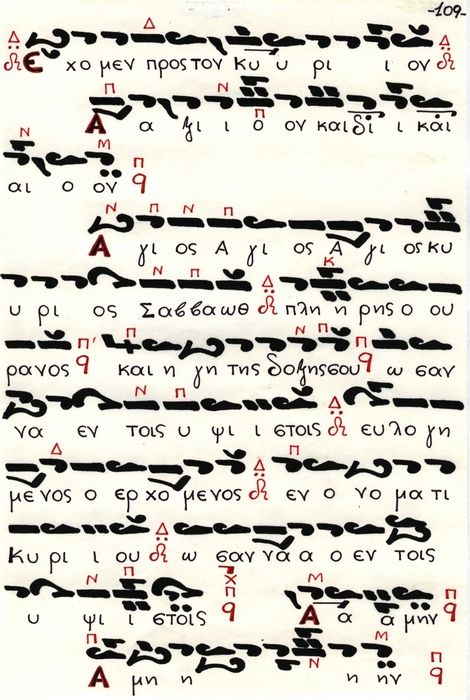 -109-
Ε χο μεν προς τον Κυ υ ρι ι ον
Α α ξι ι ο ον και δι ι και
αι ο ον
Α γι ος Α γι ος Α γι ος Κυ
υ ρι ος Σαββαωθ πλη η ρης ο ου
ρανος και η γη της δοξης σου ω σαν
να εν τοις υ ψι ι στοις ευ λο γη
μενος ο ερ χο μενος εν ο νο μα τι
Κυ ρι ι ου ω σαν να α ο εν τοις
υ ψι ι στοις Α α α μην
Α μη η η ην